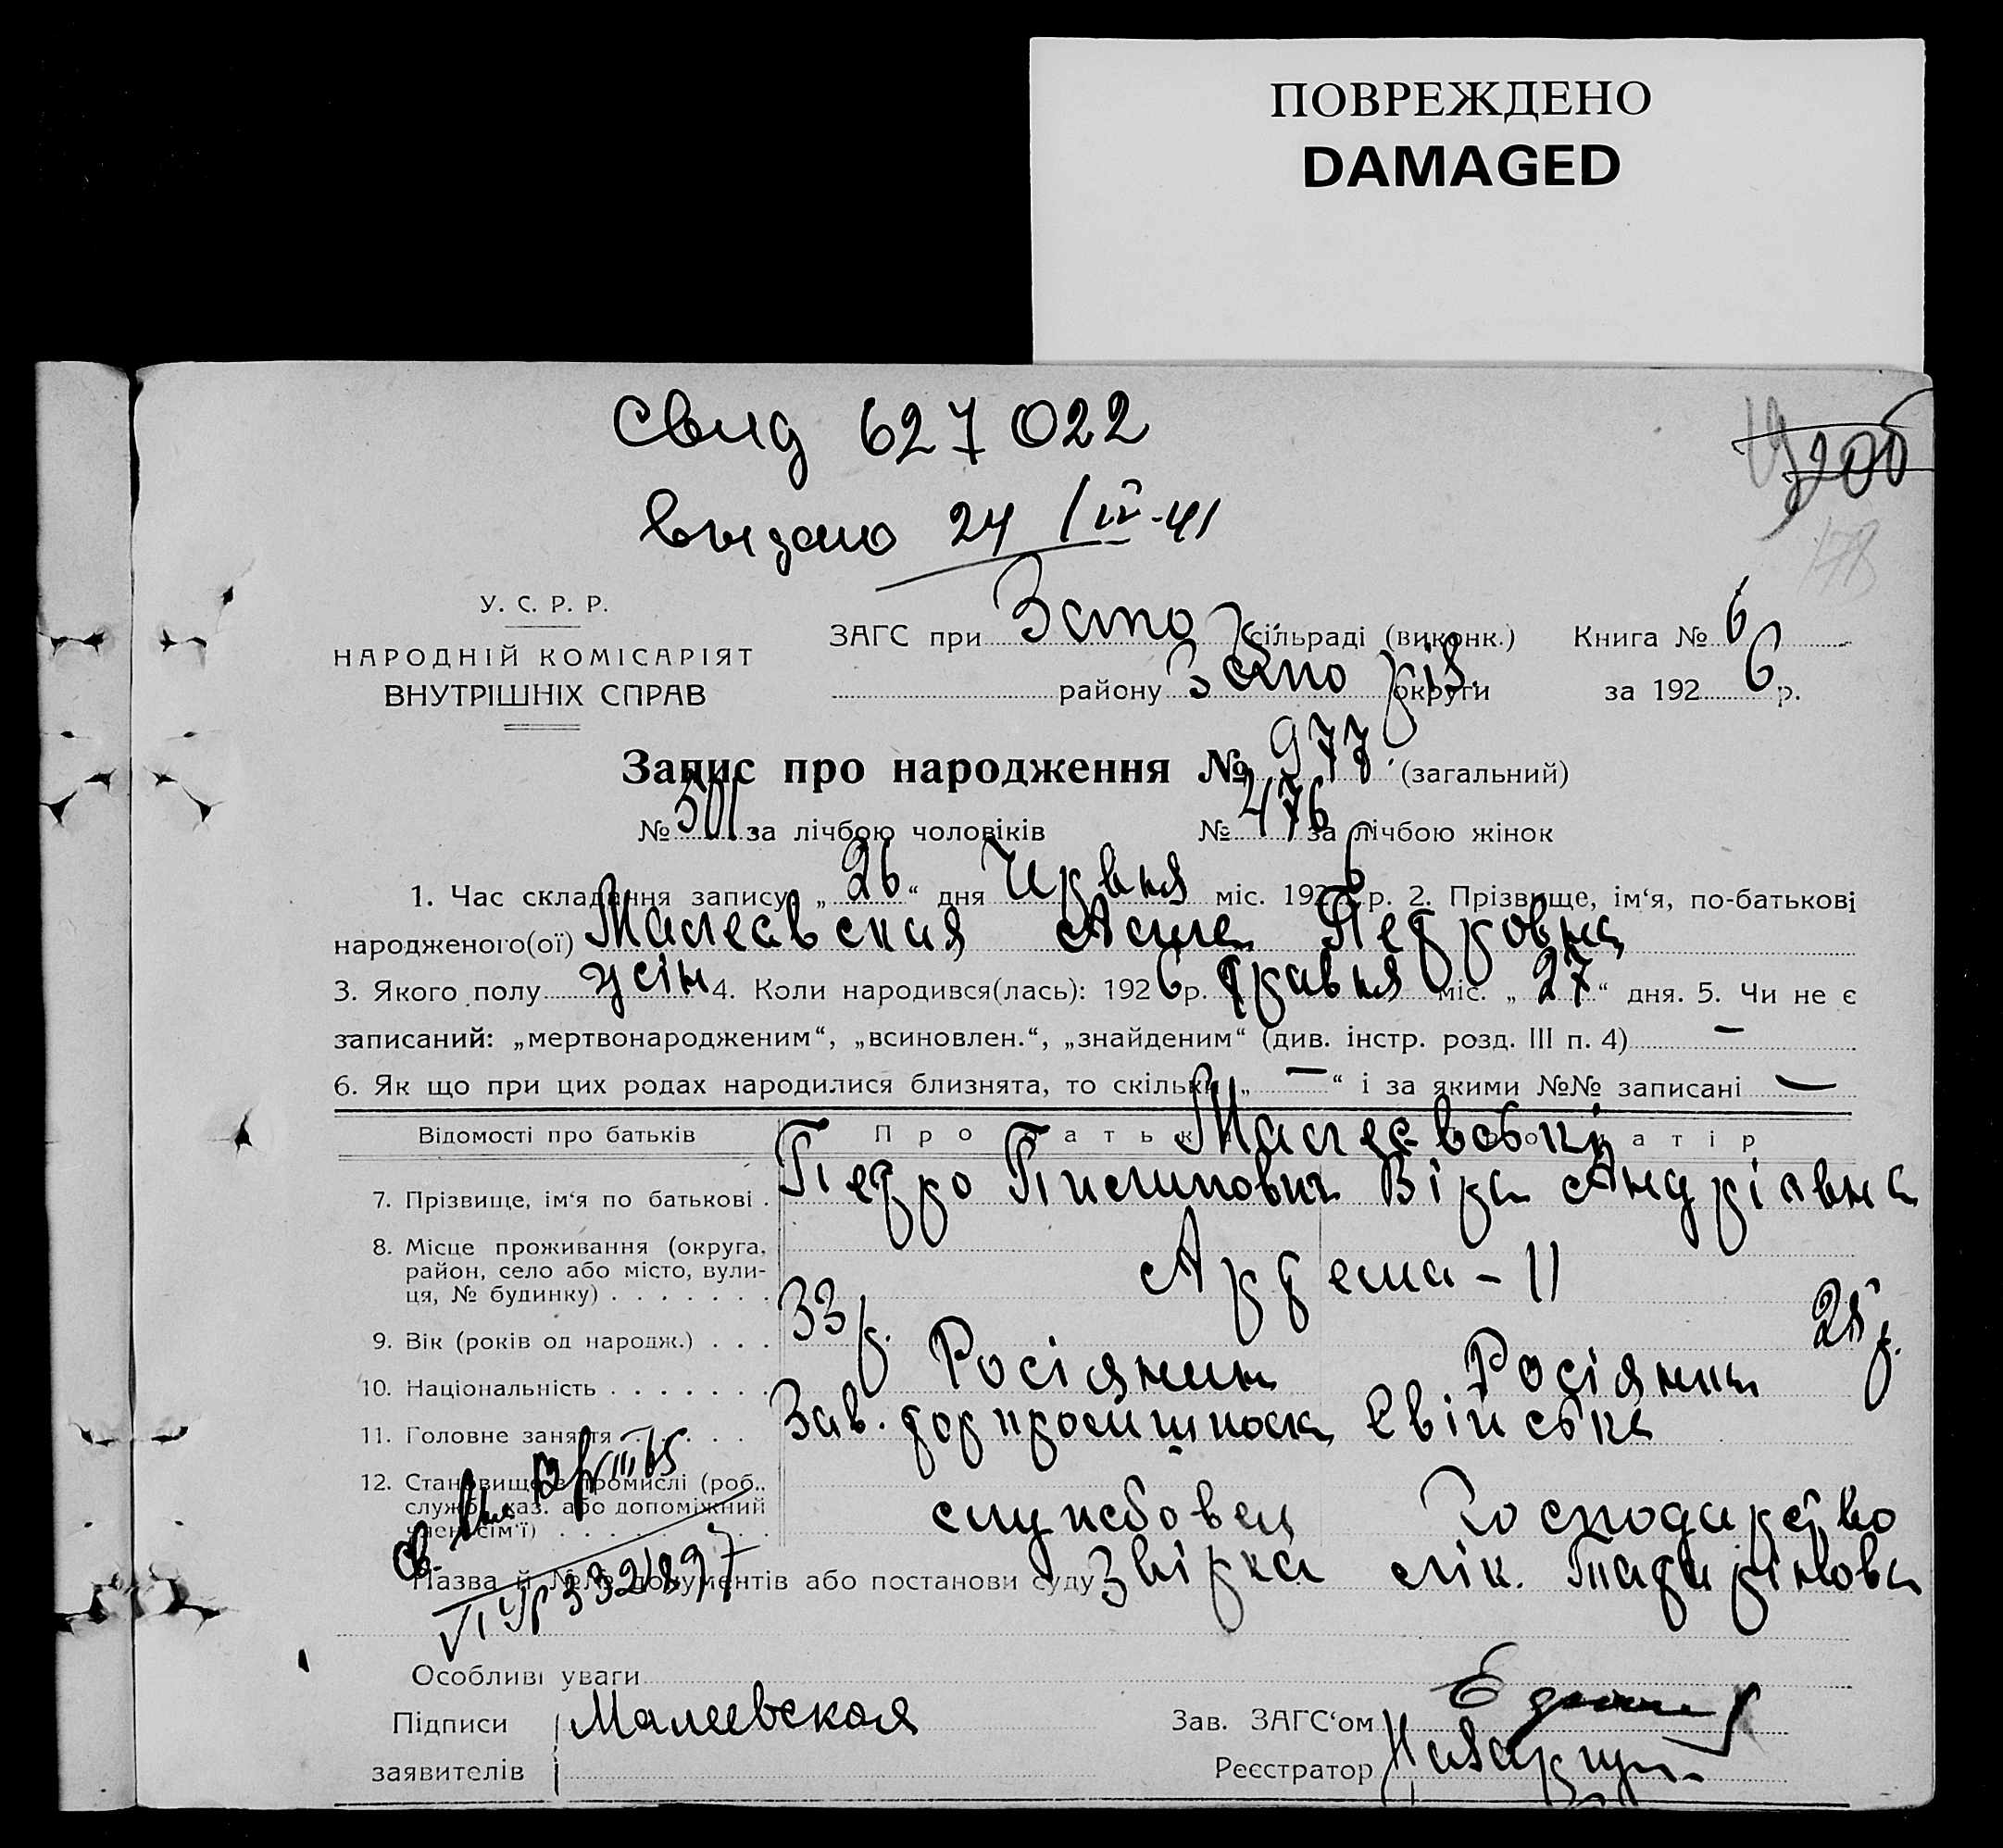 ПОВРЕЖДЕНО
DAMAGED
Свид 627022
Выдано 24/IV-41
У. С. Р. Р.
НАРОДНІЙ КОМІСАРІЯТ
ВНУТРІШНІХ СПРАВ
ЗАГС при Запо сільраді (виконк.) Книга № 6
району Запоріз. округи за 1926 р.
Запис про народження № 977. (загальний)
№ 501. за лічбою чоловіків № 476 за лічбою жінок
1. Час складання запису „26“ дня Червня міс. 1926 р. 2. Прізвище, ім‘я, по-батькові
народженого(ої) Малеевская Петровна
3. Якого полу жін 4. Коли народився(лась): 1926 р. Травня міс. „27“ дня. 5. Чи не є
записаний: „мертвонародженим“, „всиновлен.“, „знайденим“ (див. інстр. розд. III п. 4) —
6. Як що при цих родах народилися близнята, то скільки „—“ і за якими №№ записані —
Відомості про батьків Про батька Про матір
Малеевські
7. Прізвище, ім‘я по батькові . Петро Пилипович Віра Андріявна
8. Місце проживання (округа,
район, село або місто, вули-
ця, № будинку) . . . . . . . Артема – 11
9. Вік (років од народж.) . . . 33 р. 28 р.
10. Національність . . . . . . . Росіянин Росіянка
11. Головне заняття . . . . . . Зав. Свійське
12. Становище в промислі (роб.,
служб., хаз. або допоміжний
член сім‘ї) . . . . . . . . . службовец Господарство
Назва й №№ документів або постанови суду Звірка лік.
VI УР 332897
Особливі уваги
Підписи Малеевская Зав. ЗАГС‘ом
заявителів Реєстратор